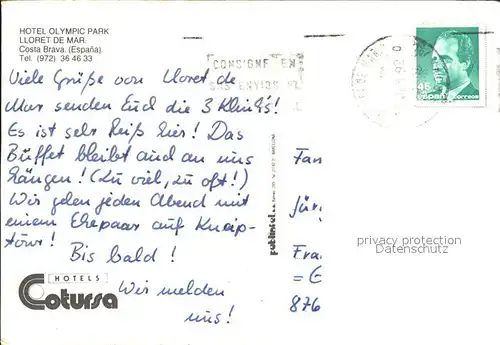 HOTEL OLYMPIC PARK
LLORET DE MAR
Costa Brava. (España)
Tel. (972) 36 46 33
CONSIGNE EN
SUS ENVIOS EL
Viele Grüße von Lloret de
Mar senden Euch die 3 Kling's!
Es ist sehr heiß hier! Das
Büffet bleibt auch an uns
hängen! (Zu viel, zu oft!)
Wir gehen jeden Abend mit
einem Ehepaar auf Kneip-
tour!
Bis bald!
Wir melden
uns!
HOTELS
Cotursa
Fam
Jür
Fra
876
privacy protection
Datenschutz
45
correos